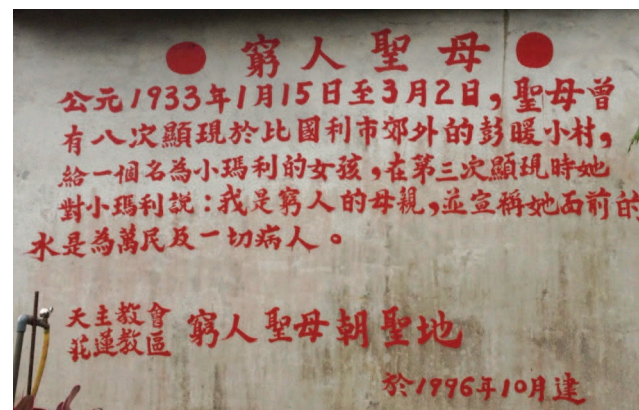 窮人聖母
公元1933年1月15日至3月2日，聖母曾
有八次顯現於比國利市郊外的彭暖小村，
給一個名為小瑪利的女孩，在第三次顯現時她
對小瑪利説：我是窮人的母親，並宣稱她面前的
水是為萬民及一切病人。
天主教會
花蓮教區
窮人聖母朝聖地
於1996年10月建